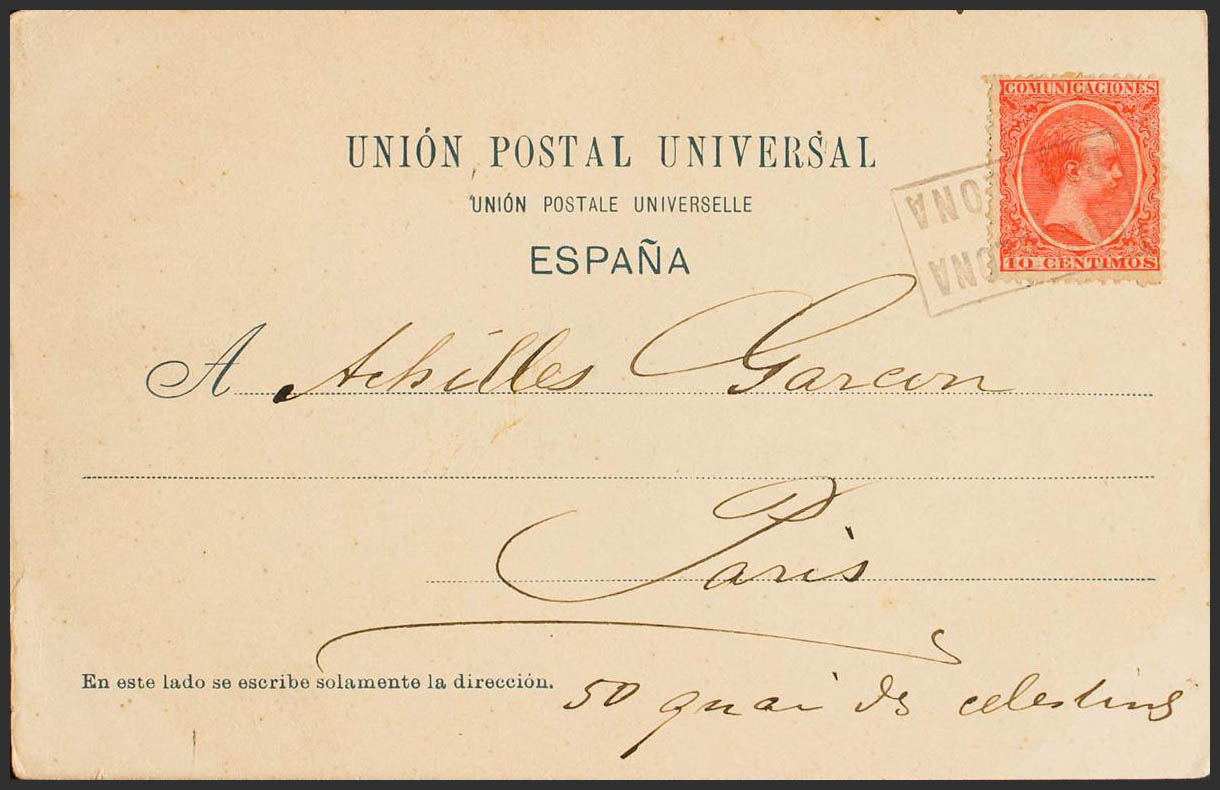 COMUNICACIONES
UNIÓN POSTAL UNIVERSAL
UNIÓN POSTALE UNIVERSELLE
ESPAÑA
10 CENTIMOS
ONA
ONA
A Achilles Garcon
Paris
En este lado se escribe solamente la dirección.
50 quai des celestins